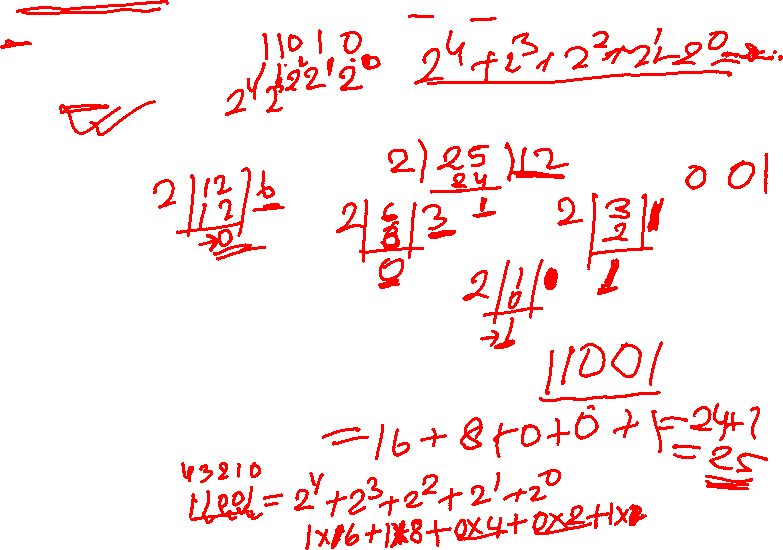 11010
2^4 2^3 2^2 2^1 2^0
2^4 + 2^3 + 2^2 + 2^1 - 2^0 =
2 ) 25 ) 12
24
1
2 | 12 | 6
12
→ 0
2 | 6 | 3
6
0
2 | 3 | 1
2
1
0 01
2 | 1 | 0
0
→ 1
11001
= 16 + 8 + 0 + 0 + 1 = 24 + 1
= 25
4 3 2 1 0
11001 = 2^4 + 2^3 + 2^2 + 2^1 + 2^0
1×16 + 1×8 + 0×4 + 0×2 + 1×